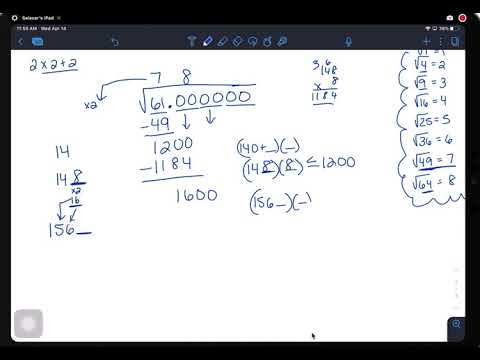 Salazar's iPad
11:55 AM Wed Apr 14
36%
2 x 2 + 2
7 8
x2
√61.000000
-49
1200
-1184
1600
14
14 8
x2
16
156_
3 6
148
x 8
1184
(140+_)(_)
(148)(8) ≤ 1200
(156_)(_)
√1 = 1
√4 = 2
√9 = 3
√16 = 4
√25 = 5
√36 = 6
√49 = 7
√64 = 8